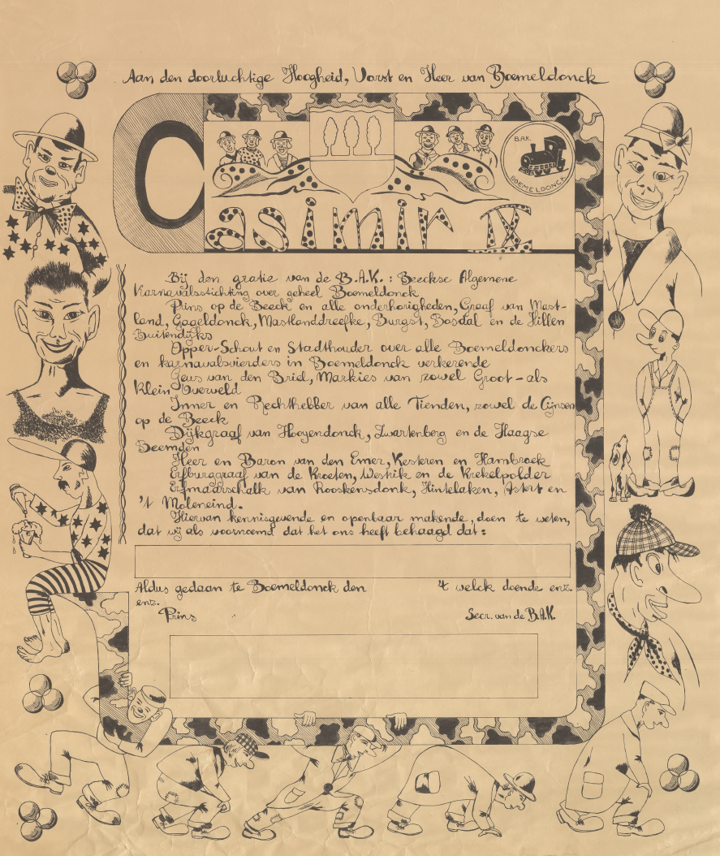 Aan den doorluchtige Hoogheid, Vorst en Heer van Boemeldonck
Casimir IX
B.A.K.
BOEMELDONCK
Bij den gratie van de B.A.K.: Beeckse Algemene
Karnavalsstichting over geheel Boemeldonck
Prins op de Beeck en alle onderhorigheden, Graaf van Mast-
land, Gageldonck, Mastlanddreefke, Burgst, Bosdal en de Hillen
Buitendijks
Opper-Schout en Stadthouder over alle Boemeldonckers
en karnavalsvierders in Boemeldonck verkerende
Jeus van den Briel, Markies van zowel Groot- als
Klein Overveld
Inner en Rechthebber van alle Tienden, zowel de Cijnsen
op de Beeck
Dijkgraaf van Hooyendonck, Zwartenberg en de Haagse
Beemden
Heer en Baron van den Emer, Kesteren en Hambroek
Erfburggraaf van de Kroeten, Westrik en de Krekelpolder
Erfmaarschalk van Rooskensdonk, Hintelaken, Astert en
't Moleneind.
Hiervan kennisgevende en openbaar makende, doen te weten,
dat wij als voornoemd dat het ons heeft behaagd dat:
Aldus gedaan te Boemeldonck den 't welck doende enz.
enz.
Prins Secr. van de B.A.K.